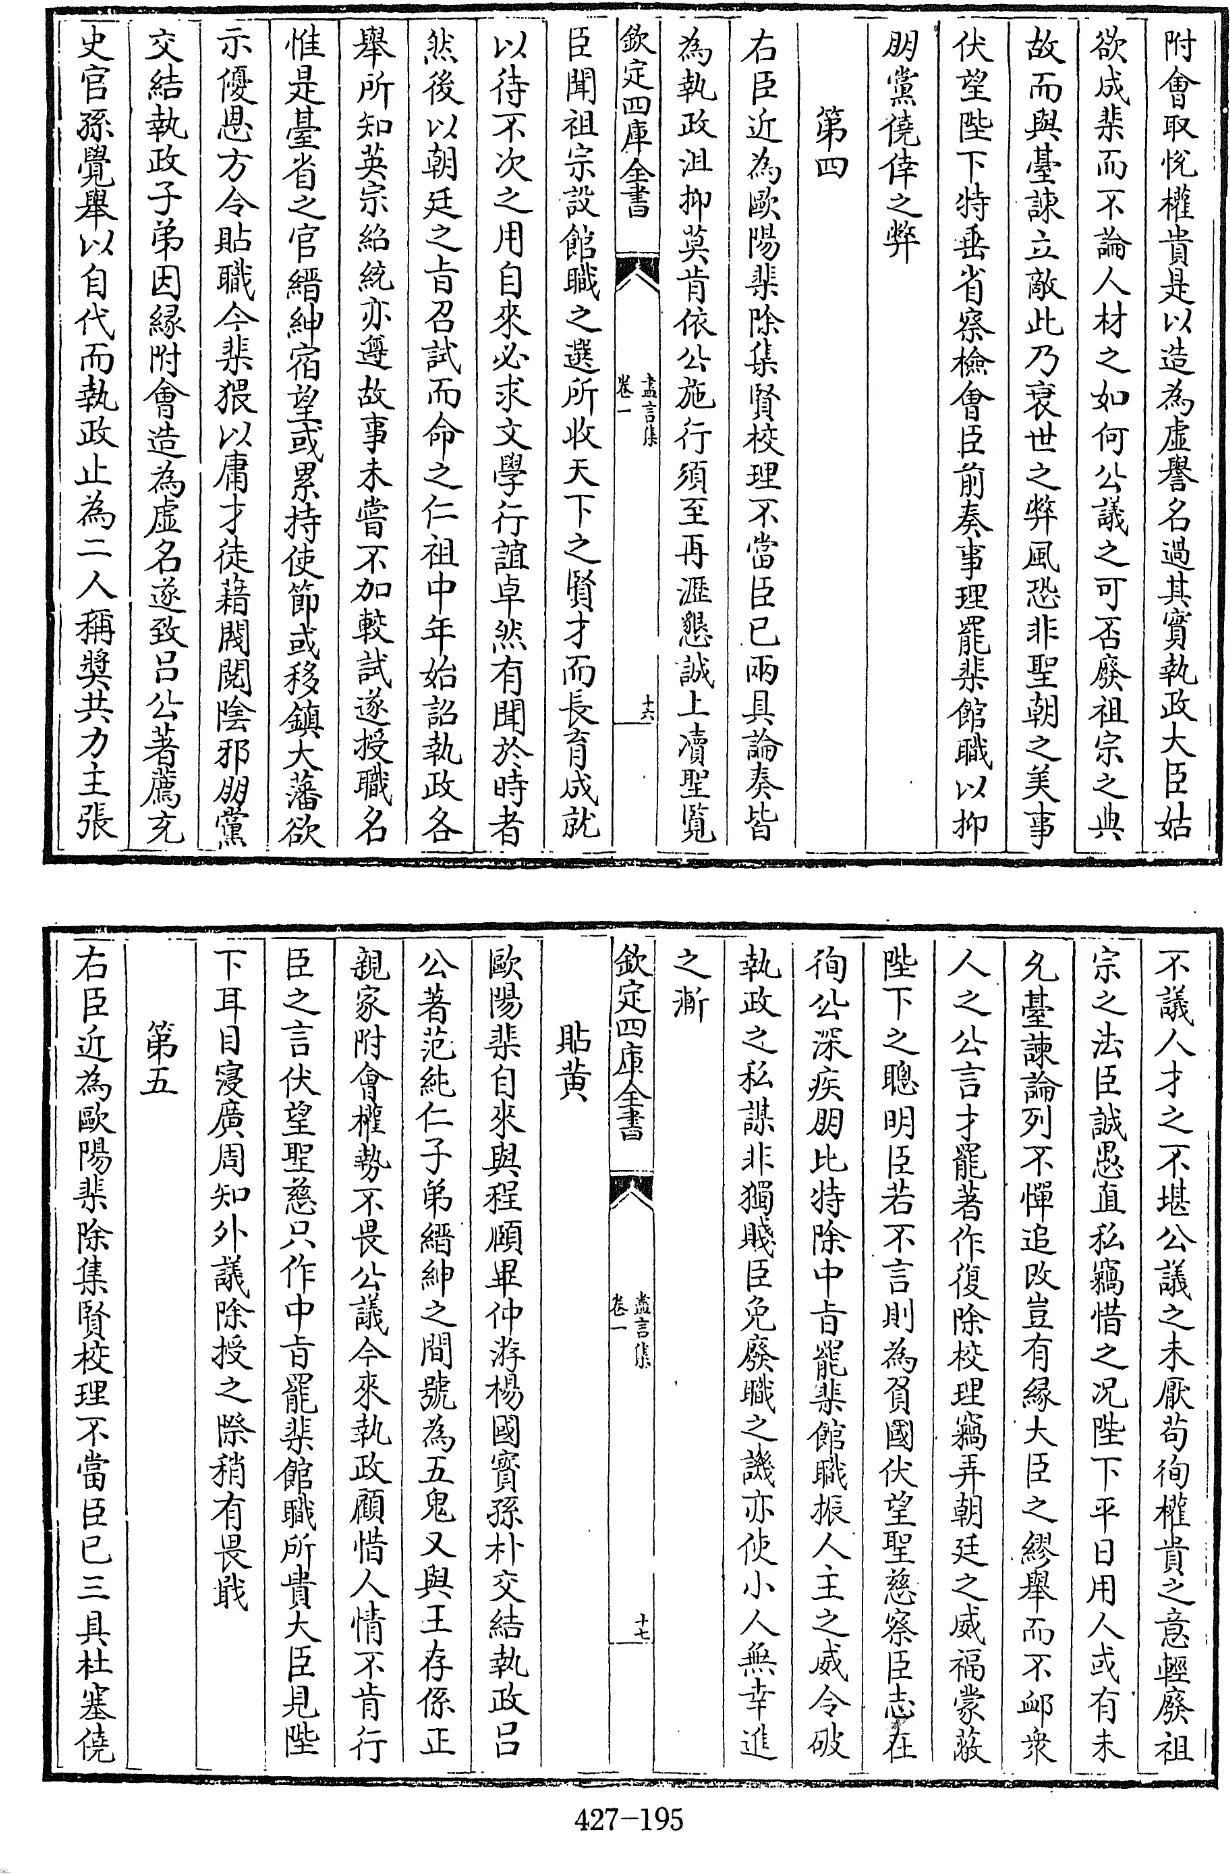 附會取悅權貴是以造為虛譽名過其實執政大臣姑
欲成棐而不論人材之如何公議之可否廢祖宗之典
故而與臺諫立敵此乃衰世之弊風恐非聖朝之美事
伏望陛下特垂省察檢會臣前奏事理罷棐館職以抑
朋黨僥倖之弊
第四
右臣近為歐陽棐除集賢校理不當臣已兩具論奏皆
為執政沮抑莫肯依公施行須至再瀝懇誠上凟聖覧
欽定四庫全書
盡言集
卷一
十六
臣聞祖宗設館職之選所收天下之賢才而長育成就
以待不次之用自來必求文學行誼卓然有聞於時者
然後以朝廷之旨召試而命之仁祖中年始詔執政各
舉所知英宗紹統亦遵故事未嘗不加較試遂授職名
惟是臺省之官縉紳宿望或累持使節或移鎮大藩欲
示優恩方令貼職今棐猥以庸才徒藉閥閱陰邪朋黨
交結執政子弟因緣附會造為虛名遂致呂公著薦充
史官孫覺舉以自代而執政止為二人稱奬共力主張
不議人才之不堪公議之未厭苟徇權貴之意輕廢祖
宗之法臣誠愚直私竊惜之况陛下平日用人或有未
允臺諫論列不憚追改豈有緣大臣之繆舉而不䘏衆
人之公言才罷著作復除校理竊弄朝廷之威福蒙蔽
陛下之聰明臣若不言則為負國伏望聖慈察臣志在
徇公深疾朋比特除中旨罷棐館職振人主之威令破
執政之私謀非獨賤臣免廢職之譏亦使小人無幸進
之漸
欽定四庫全書
盡言集
卷一
十七
貼黄
歐陽棐自來與程頤畢仲游楊國寳孫朴交結執政呂
公著范純仁子弟縉紳之間號為五鬼又與王存係正
親家附會權勢不畏公議今來執政顧惜人情不肯行
臣之言伏望聖慈只作中旨罷棐館職所貴大臣見陛
下耳目寖廣周知外議除授之際稍有畏戢
第五
右臣近為歐陽棐除集賢校理不當臣已三具杜塞僥
427-195